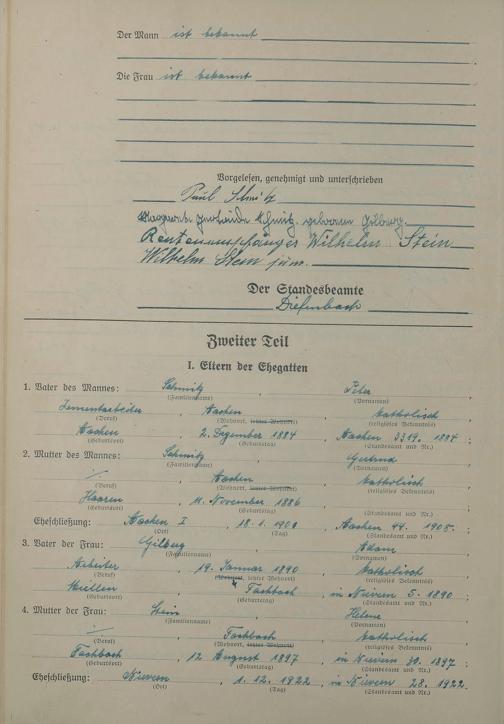 Der Mann ist bekannt
Die Frau ist bekannt
Vorgelesen, genehmigt und unterschrieben
Paul Schmitz
Gertrude Schmitz geborene Gilberg
Rentenempfänger Wilhelm Stein
Wilhelm Stein jun.
Der Standesbeamte
Diefenbach
Zweiter Teil
I. Eltern der Ehegatten
1. Vater des Mannes: Schmitz, Peter
(Familienname) (Vornamen)
Zementarbeiter, Aachen, katholisch
(Beruf) (Wohnort, letzter Wohnort) (religiöses Bekenntnis)
Aachen, 2. Dezember 1884, Aachen 3319. 1884;
(Geburtsort) (Geburtstag) (Standesamt und Nr.)
2. Mutter des Mannes: Schmitz, Gertrud
(Familienname) (Vornamen)
./. , Aachen, katholisch
(Beruf) (Wohnort, letzter Wohnort) (religiöses Bekenntnis)
Haaren, 11. November 1886
(Geburtsort) (Geburtstag) (Standesamt und Nr.)
Eheschließung: Aachen I, Aachen 44. 1905.
(Ort) (Tag) (Standesamt und Nr.)
3. Vater der Frau: Gilberg, Adam
(Familienname) (Vornamen)
Arbeiter, 19. Januar 1890, katholisch
(Beruf) (Wohnort, letzter Wohnort) (religiöses Bekenntnis)
Fachbach, in Nievern 5. 1890;
(Geburtsort) (Geburtstag) (Standesamt und Nr.)
4. Mutter der Frau: Stein, Helene
(Familienname) (Vornamen)
./. , Fachbach, katholisch
(Beruf) (Wohnort, letzter Wohnort) (religiöses Bekenntnis)
Fachbach, 12 August 1897, in Nievern 30. 1897;
(Geburtsort) (Geburtstag) (Standesamt und Nr.)
Eheschließung: Nievern, 1. 12. 1922, in Nievern 28. 1922.
(Ort) (Tag) (Standesamt und Nr.)